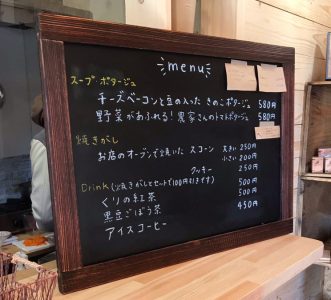 menu
スープ ポタージュ
チーズベーコンと豆の入った きのこポタージュ 580円
野菜があふれる！農家さんのトマトポタージュ 580円
焼きがし
お店のオーブンで焼いた スコーン 大きい 250円
小さい 200円
クッキー 250円
Drink（焼きがしとセットで100円引きです）
くりの紅茶 500円
黒豆ごぼう茶 500円
アイスコーヒー 450円